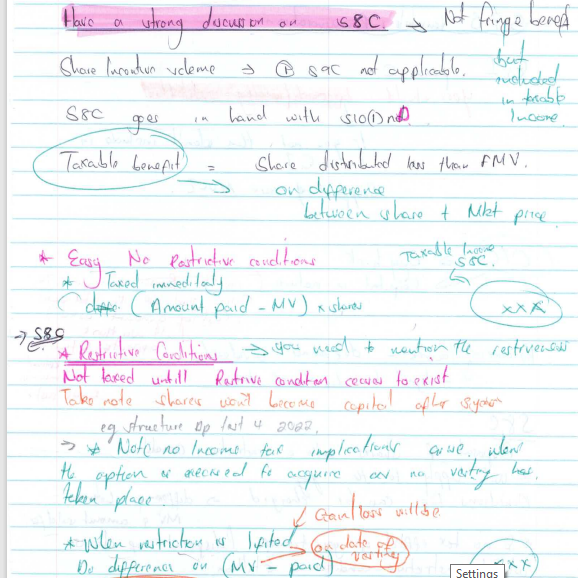 Have a strong discussion on S8C. → Not fringe benefit
but included in taxable Income.
Share Incentive scheme → ℗ S9C not applicable.
S8C goes in hand with S10(1)nD
Taxable benefit = Share distributed less than FMV.
→ on difference
between share + Mkt price.
* Easy No Restrictive conditions
Taxable Income S8C.
* Taxed immediately
(Amount paid - MV) x shares
xxx
→ S8C
* Restrictive Conditions → you need to mention the
Not taxed untill Restrive condition ceases to exist
Take note shares won't become capital after 3year
eg structure Dp test 4 2022.
→ * Note no Income tax implications arise when
the option is exercised to acquire and no vesting has
taken place.
Gain/loss will be
* When restriction is lifted on date of vesting
Do difference on (MV - paid)
xxx
Settings